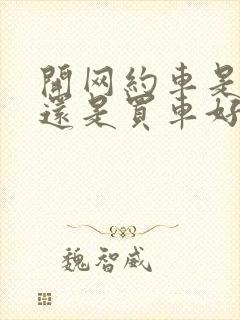 開网約車是
還是買車好
魏智威